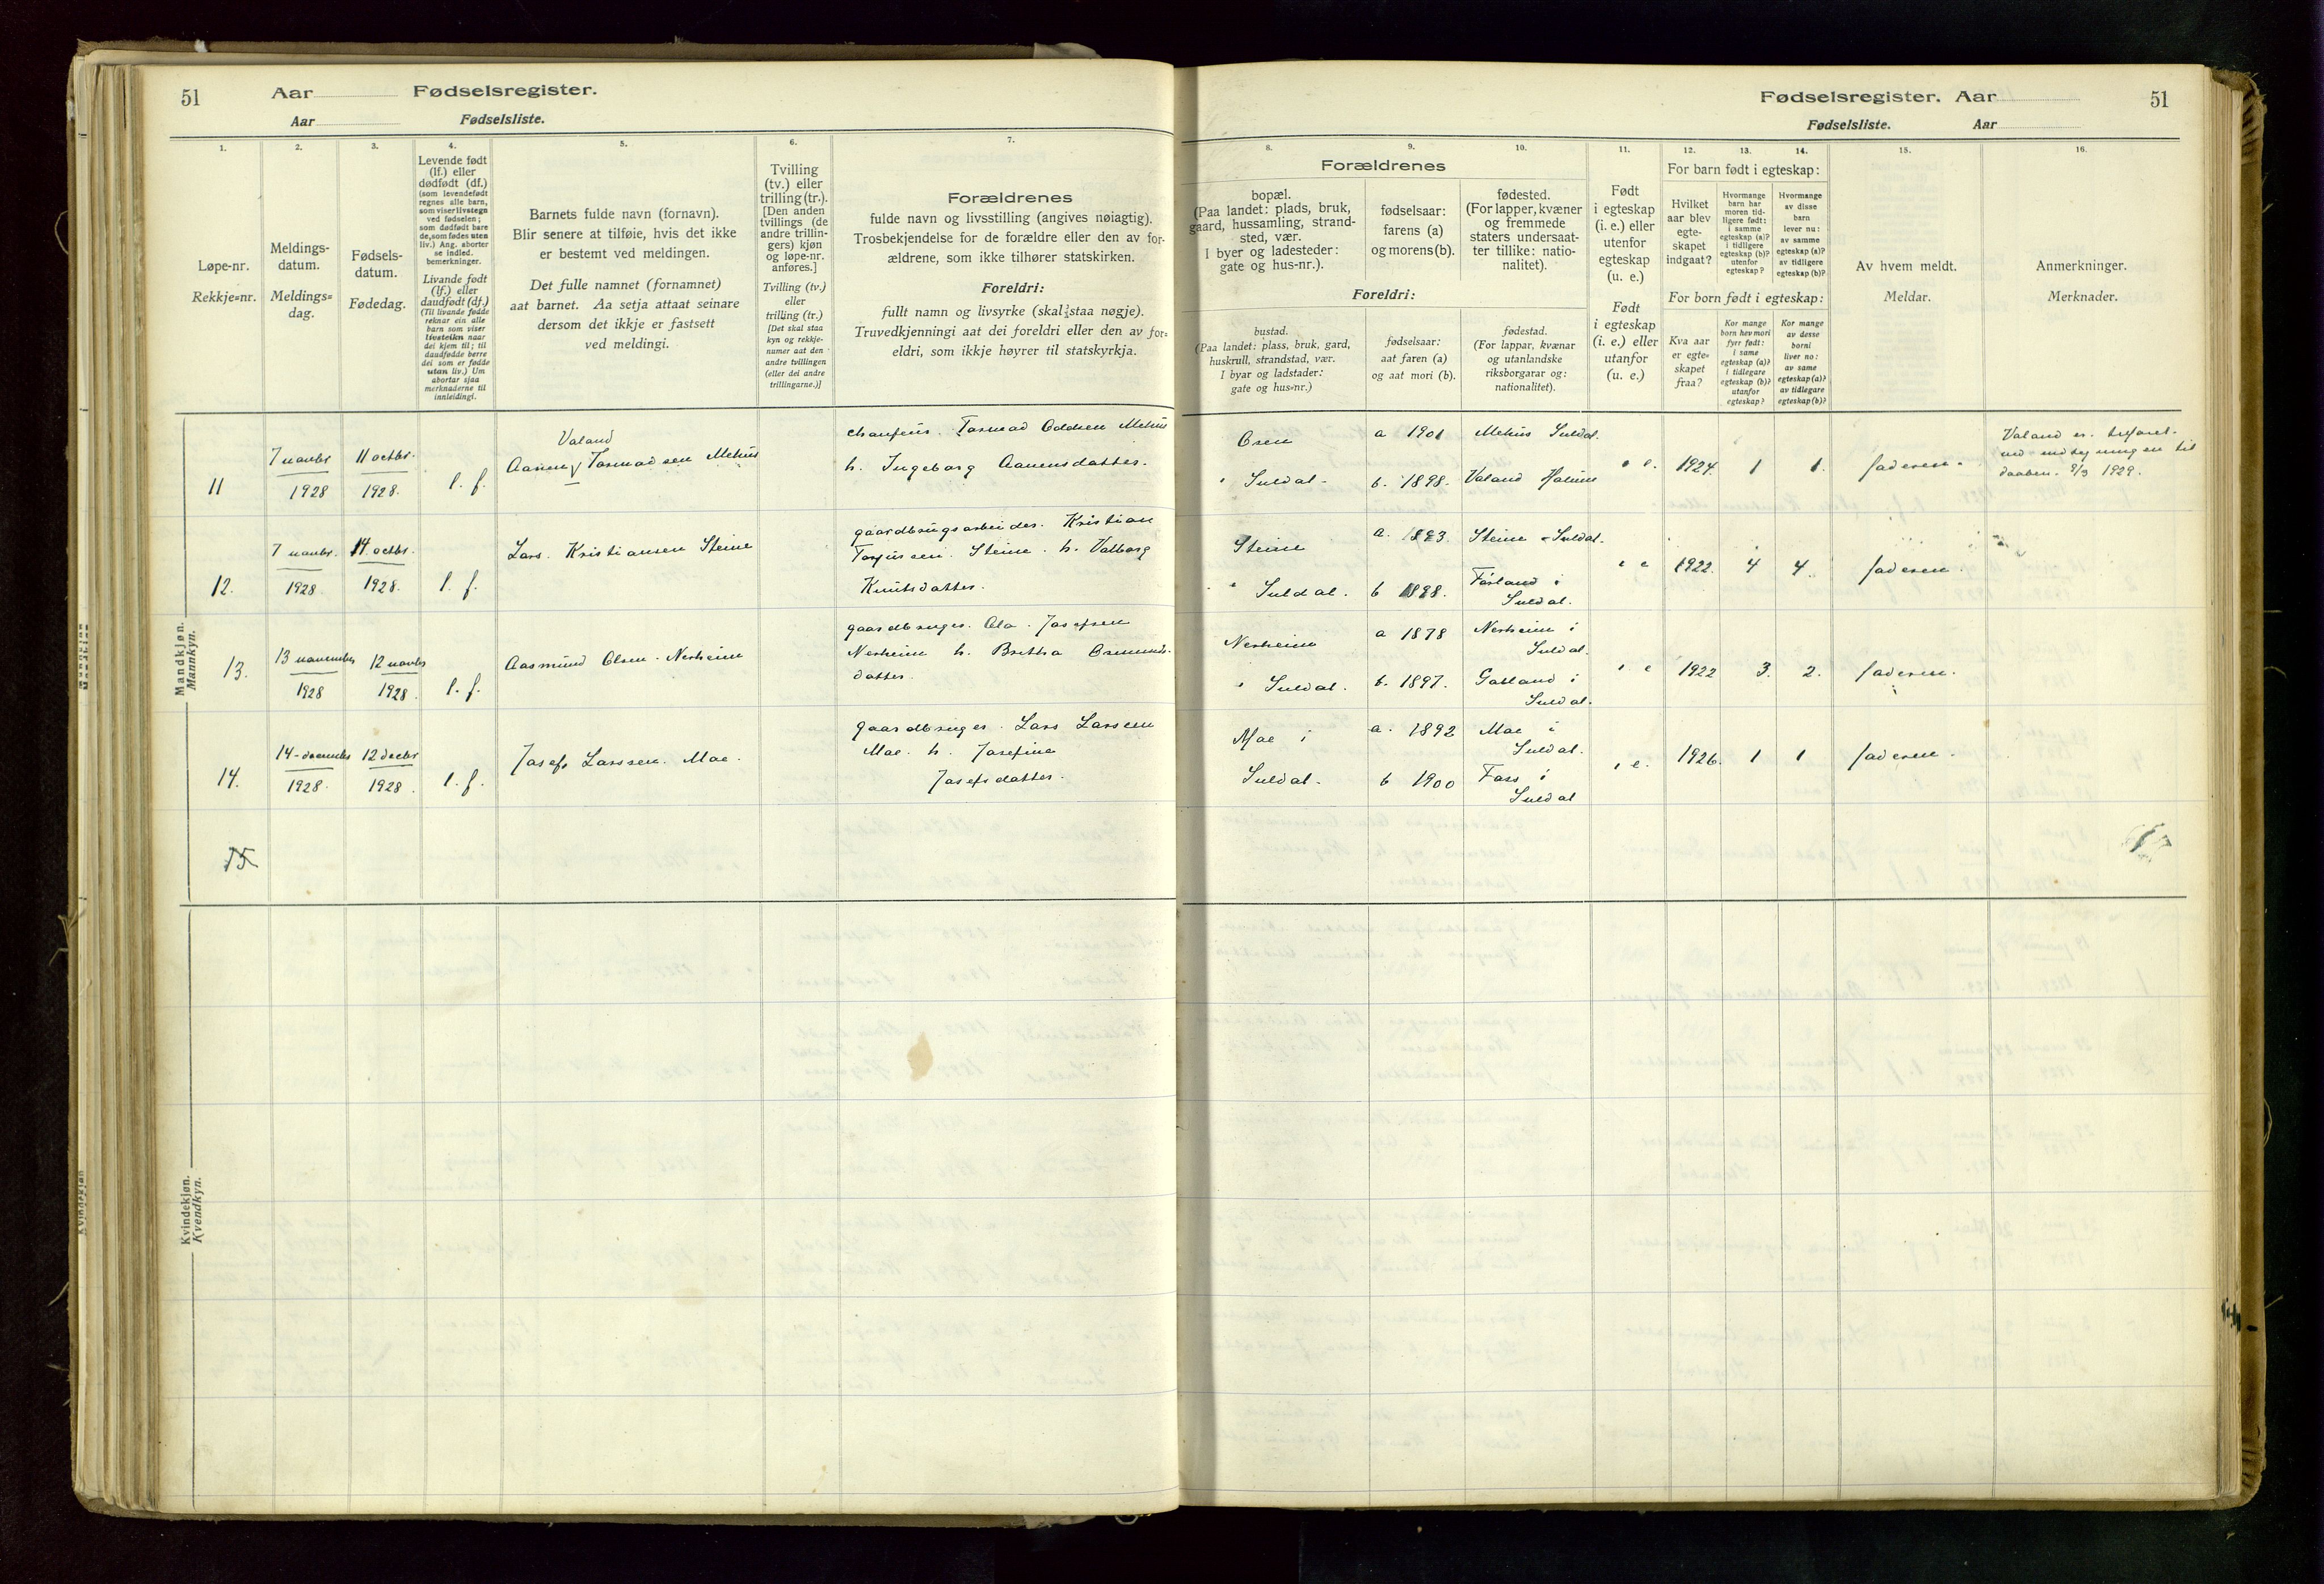 51 Aar Fødselsregister.
Aar Fødselsliste.
Fødselsregister. Aar 51
Fødselsliste. Aar
1.
Løpe-nr.
Rekkje=nr.
2.
Meldings-
datum.
Meldings=
dag.
3.
Fødsels-
datum.
Fødedag.
4.
Levende født
(lf.) eller
dødfødt (df.)
(som levendefødt
regnes alle barn,
som viser livstegn
ved fødselen;
som dødfødt bare
de, som fødes uten
liv.) Ang. aborter
se indled.
bemerkninger.
Livande født
(lf.) eller
daudfødt (df.)
(Til livande fødde
reknar ein alle
barn som viser
livsteikn naar
dei kjem til; til
daudfødde berre
dei som er fødde
utan liv.) Um
abortar sjaa
merknaderne til
innleidingi.
5.
Barnets fulde navn (fornavn).
Blir senere at tilføie, hvis det ikke
er bestemt ved meldingen.
Det fulle namnet (fornamnet)
aat barnet. Aa setja attaat seinare
dersom det ikkje er fastsett
ved meldingi.
6.
Tvilling
(tv.) eller
trilling (tr.).
[Den anden
tvillings (de
andre trillin-
gers) kjøn
og løpe-nr.
anføres.]
Tvilling (tv.)
eller
trilling (tr.)
[Det skal staa
kyn og rekkje-
numer aat den
andre tvillingen
(eller dei andre
trillingarne.)]
7.
Forældrenes
fulde navn og livsstilling (angives nøiagtig).
Trosbekjendelse for de forældre eller den av for-
ældrene, som ikke tilhører statskirken.
Foreldri:
fullt namn og livsyrke (skal staa nøgje).
Truvedkjenningi aat dei foreldri eller den av for=
eldri, som ikkje høyrer til statskyrkja.
8.
9.
10.
Forældrenes
bopæl.
(Paa landet: plads, bruk,
gaard, hussamling, strand-
sted, vær.
I byer og ladesteder:
gate og hus-nr.).
fødselsaar:
farens (a)
og morens (b).
fødested.
(For lapper, kvæner
og fremmede
staters undersaat-
ter tillike: natio-
nalitet).
Foreldri:
bustad.
(Paa landet: plass, bruk, gard,
huskrull, strandstad, vær.
I byar og ladstader:
gate og hus=nr.)
fødselsaar:
aat faren (a)
og aat mori (b).
fødestad.
(For lappar, kvænar
og utanlandske
riksborgarar og:
nationalitet).
11.
Født
i egteskap
(i. e.) eller
utenfor
egteskap
(u. e.)
Født
i egteskap
(i. e.) eller
utanfor
egteskap
(u. e.)
12. 13. 14.
For barn født i egteskap:
Hvilket
aar blev
egte-
skapet
indgaat?
Hvormange
barn har
moren tid-
ligere født:
i samme
egteskap (a)?
i tidligere
egteskap (b)?
utenfor
egteskap?
Hvormange
av disse
barn
lever nu:
av samme
egteskap (a)?
av tidligere
egteskap (b)?
For born født i egteskap:
Kva aar
er egte=
skapet
fraa?
Kor mange
born hev mori
fyrr født:
i same
egteskap (a)?
i tidlegare
egteskap (b)?
utanfor
egteskap?
Kor mange
av desse
borni
liver no:
av same
egteskap (a)?
av tidlegare
egteskap (b)?
15.
Av hvem meldt.
Meldar.
16.
Anmerkninger.
Merknader.
Mandkjøn.
Mannkyn.
11
7 novbr
1928
11 octbr.
1928.
l. f.
Valand
Aanen Tormodsen Mehus
chaufeur. Tormod Oddsen Mehus
h. Ingeborg Aanensdatter.
Osen
" Suldal.
a 1901
b. 1898.
Mehus Suldal.
Valand Holum
" e.
1924.
1
1.
faderen.
Valand er. tilføiet.
daaben. 1929.
12.
7 novbr.
1928
14. octbr.
1928.
l. f.
Lars. Kristiansen Steine
gaardbrugsarbeider. Kristian
Torjussen. Steine. h. Valborg
Knutsdatter.
Steine
" Suldal.
a. 1893.
b 1898.
Steine Suldal.
Førland i
Suldal.
" e
1922.
4
4.
faderen.
13.
13 november
1928
12 novbr
1928.
l. f.
Aasmund Olsen. Nerheim
gaardbruger. Ola. Josefsen
Nerheim h. Britha Osmunds-
datter.
Nerheim
" Suldal.
a 1878
b. 1897.
Nerheim i
Suldal.
Gatland i
Suldal.
" e
1922
3.
2.
faderen.
14.
14 december
1928.
12 decbr
1928.
l. f.
Josef Larssen. Moe.
gaardbruger. Lars Larssen
Moe. h. Josefine
Josefsdatter.
Moe i
Suldal.
a. 1892
b 1900
Moe i
Suldal.
Foss i
Suldal
" e.
1926.
1
1
faderen.
15
Kvindekjøn.
Kvendkyn.